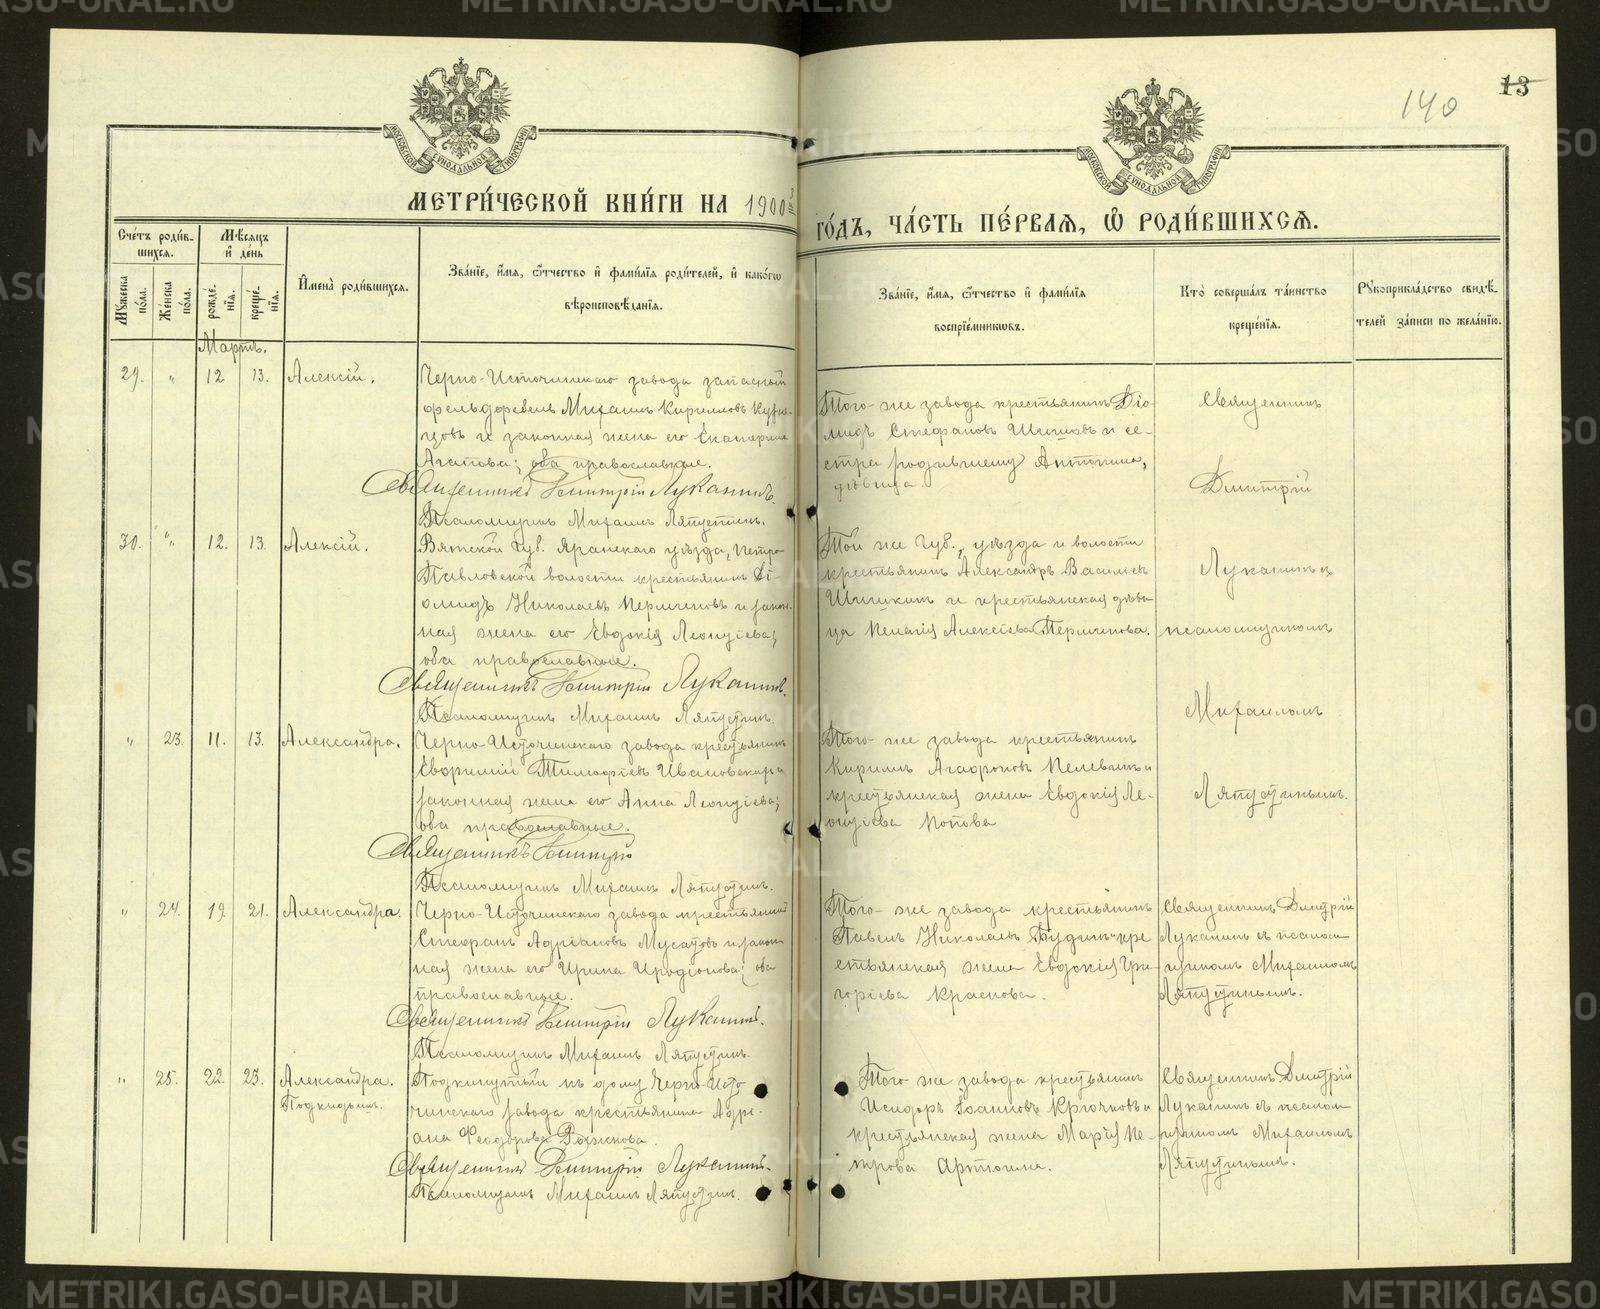 METRIKI.GASO-URAL.RU
140
13
МОСКОВСКОЙ СѴНОДАЛЬНОЙ ТИПОГРАФІИ
МОСКОВСКОЙ СѴНОДАЛЬНОЙ ТИПОГРАФІИ
МЕТРИ́ЧЕСКОЙ КНИ́ГИ НА 1900й
ГО́ДЪ, ЧА́СТЬ ПЕ́РВАЯ, Ѡ РОДИ́ВШИХСЯ.
Сче́тъ роди́в-
шихся.
Мꙋжеска по́ла.
Же́нска по́ла.
Мѣсяцъ и҆ де́нь
рожде́нїя.
креще́нїя.
И҆мена̀ роди́вшихся.
Зва́нїе, и҆́мя, ѻ҆́тчество и҆ фами́лїя роди́телей, и҆ како́гѡ
вѣроисповѣ́данїя.
Зва́нїе, и҆́мя, ѻ҆́тчество и҆ фами́лїя
воспрїе́мникѡвъ.
Кто̀ соверша́лъ та́инство
креще́нїя.
Рꙋкоприкла́дство свидѣ́-
телей за́писи по жела́нїю.
Мартъ.
29. " 12 13. Алексій.
Черно-Источинскаго завода запасный
фельдфебель Михаилъ Кирилловъ Кузне-
цовъ и законная жена его Екатерина
Агапова; оба православные.
Священникъ Димитрій Луканинъ.
Псаломщикъ Михаилъ Ляпустинъ.
Того-же завода крестьянинъ Діо-
мидъ Стефановъ Шишовъ и се-
стра родившему Антонина,
дѣвица.
Священникъ
Дмитрій
30. " 12. 13. Алексій.
Вятской губ. Яранскаго уѣзда, Петро-
Павловской волости крестьянинъ Ді-
омидъ Николаевъ Перминовъ и закон-
ная жена его Евдокія Леонтіева;
оба православные.
Священникъ Димитрій Луканинъ.
Псаломщикъ Михаилъ Ляпустинъ.
Той же губ., уѣзда и волости
крестьянинъ Александръ Васильевъ
Шишкинъ и крестьянская дѣви-
ца Пелагія Алексіева Перминова.
Луканинъ съ
псаломщикомъ
Михаиломъ
" 23. 11. 13. Александра.
Черно-Источинскаго завода крестьянинъ
Евфимій Тимофіевъ Ивановскихъ и
законная жена его Анна Леонтіева;
оба православные.
Священникъ Димитрій
Псаломщикъ Михаилъ Ляпустинъ.
Того-же завода крестьянинъ
Кириллъ Агафоновъ Пелевинъ и
крестьянская жена Евдокія Ле-
онтіева Попова
Ляпустинымъ.
" 24. 19. 21. Александра.
Черно-Источинскаго завода крестьянинъ
Стефанъ Адріановъ Мусатовъ и закон-
ная жена его Ирина Иродіонова; оба
православные.
Священникъ Димитрій Луканинъ.
Псаломщикъ Михаилъ Ляпустинъ.
Того-же завода крестьянинъ
Павелъ Николаевъ Будинъ и кре-
стьянская жена Евдокія Гри-
горіева Краснова.
Священникъ Дмитрій
Луканинъ съ псалом-
щикомъ Михаиломъ
Ляпустинымъ.
" 25. 22. 23. Александра.
Подкидышъ.
Подкинутый къ дому Черно-Исто-
чинскаго завода крестьянина Адрі-
ана Феодорова
Священникъ Димитрій Луканинъ.
Псаломщикъ Михаилъ Ляпустинъ.
Того-же завода крестьянинъ
Исидоръ Іоанновъ Крючковъ и
крестьянская жена Марія Пе-
трова
Священникъ Дмитрій
Луканинъ съ псалом-
щикомъ Михаиломъ
Ляпустинымъ.